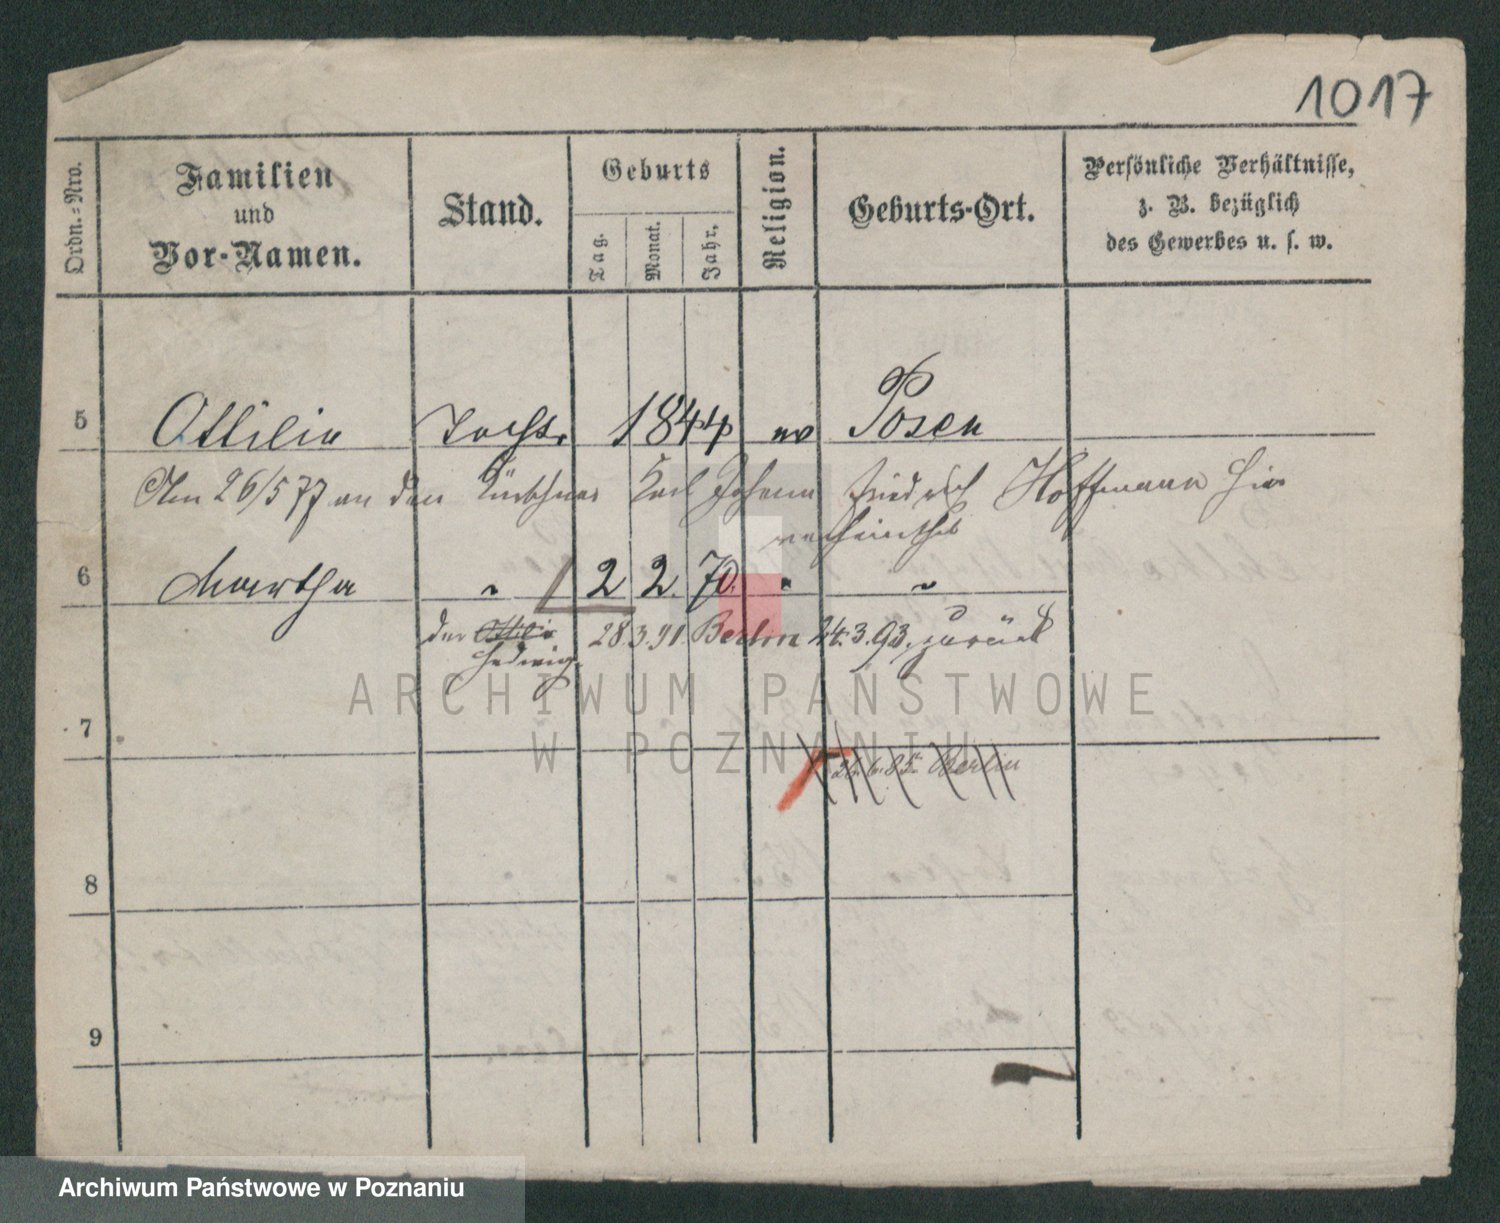 1017
Ordn.-Nro.
Familien
und
Vor-Namen.
Stand.
Geburts
Tag.
Monat.
Jahr.
Religion.
Geburts-Ort.
Persönliche Verhältnisse,
z. B. bezüglich
des Gewerbes u. s. w.
5 Ottilie Tocht. 1844 ev Posen
Am 26/5 77 an den Kürschner Karl Johann Friedrich Hoffmann hier
verheirathet
6 Martha " 2 2. 70. " "
der Ottilie 28.3.91. Berlin 24.3.93. zurück
Hedwig.
ARCHIWUM PAŃSTWOWE
W POZNANIU
7
24. 6. 85. Berlin
8
9
Archiwum Państwowe w Poznaniu